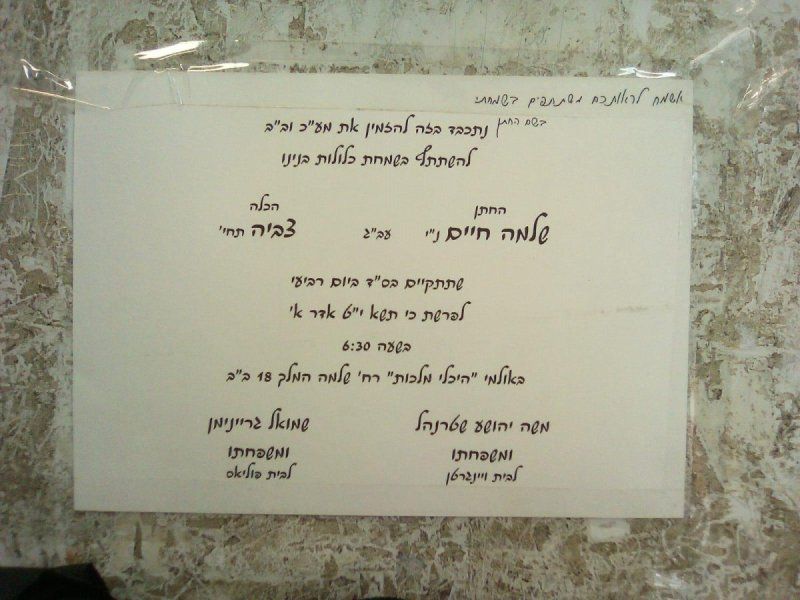 אשמח לראותכם משתתפים בשמחתי
בשם החתן
נתכבד בזה להזמין את מע"כ וב"ב
להשתתף בשמחת כלולות בנינו
החתן הכלה
שלמה חיים ני"י עב"ג צביה תחי'
שתתקיים בס"ד ביום רביעי
לפרשת כי תשא י"ט אדר א'
בשעה 6:30
באולמי "היכלי מלכות" רח' שלמה המלך 18 ב"ב
משה יהושע שטרנהל שמואל גריינימן
ומשפחתו ומשפחתו
לבית ויינגרטן לבית פוליאס